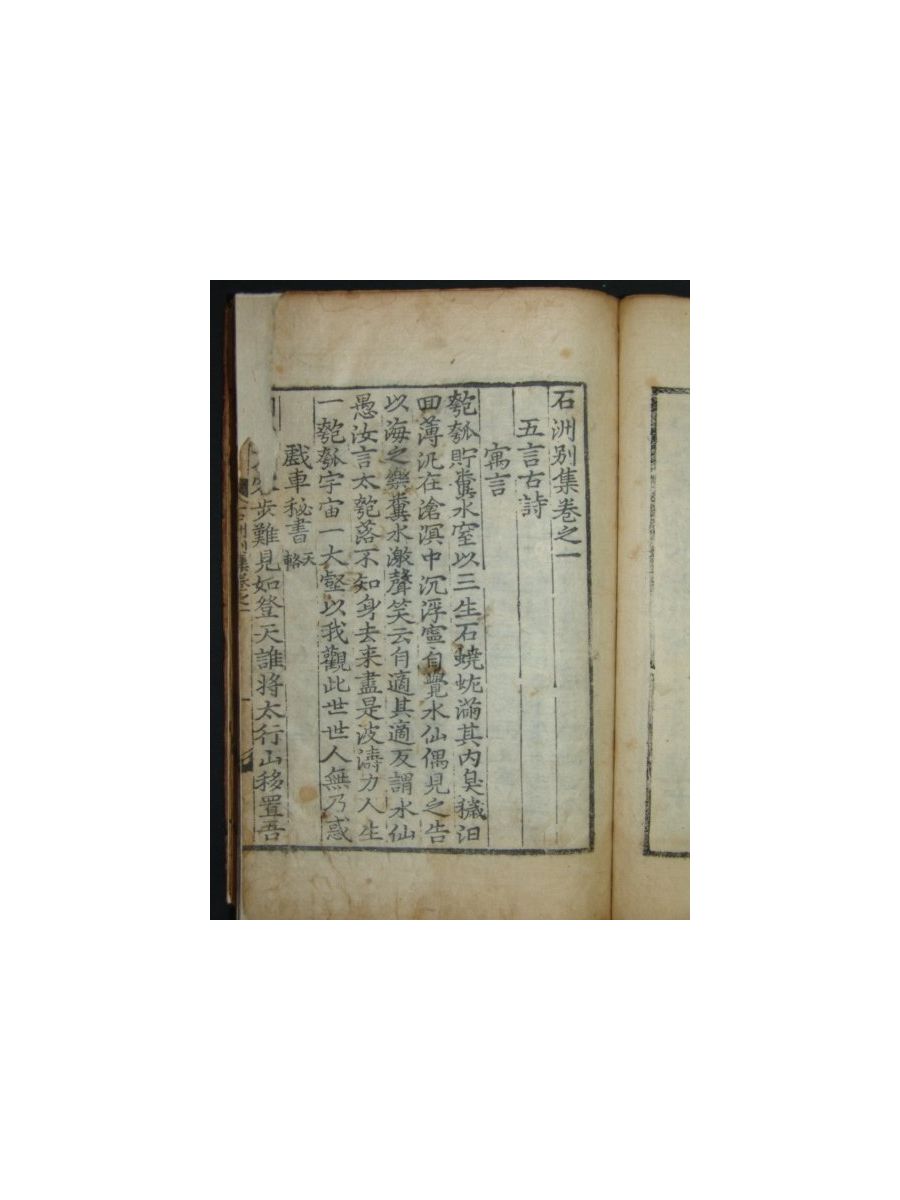 石洲別集卷之一
五言古詩
寓言
匏瓠貯糞水窒以三生石蟯蚘滿其內臭穢汩
回薄汎在滄溟中沉浮靈自覺水仙偶見之告
以海之樂糞水激聲笑云自適其適反謂水仙
愚汝言太匏落不知身去来盡是波濤力人生
一匏瓠宇宙一大壑以我觀此世世人無乃惑
戲車秘書天輅
步難見如登天誰將太行山移置吾
石洲別集卷之一